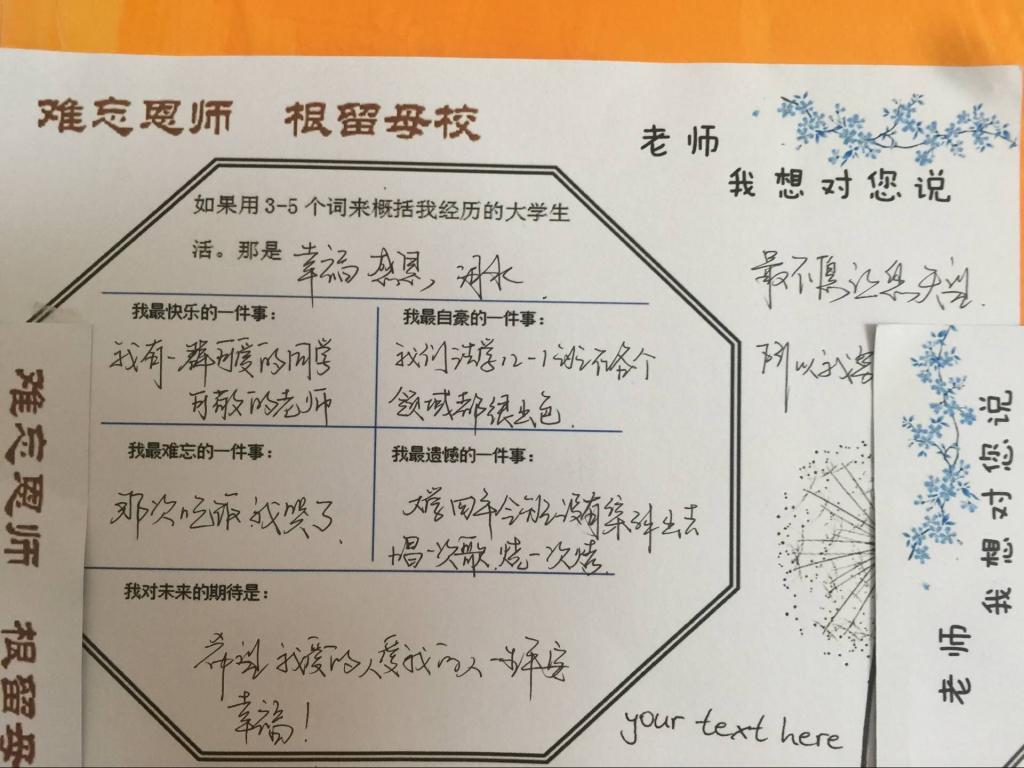 难忘恩师 根留母校
老师
我想对您说
如果用3-5个词来概括我经历的大学生
活。那是 幸福 感恩, 泪水.
我最快乐的一件事:
我有一群可爱的同学
可敬的老师
我最自豪的一件事:
我们法学12-1班在各个
领域都很出色.
我最难忘的一件事:
那次吃饭我哭了.
我最遗憾的一件事:
大学四年全班没有集体出去
唱一次歌.烧一次烤.
我对未来的期待是:
希望我爱的人爱我的人一生平安
幸福!
最不愿让您失望.
所以我
your text here
难忘恩师 根留母
老师
我想对您说